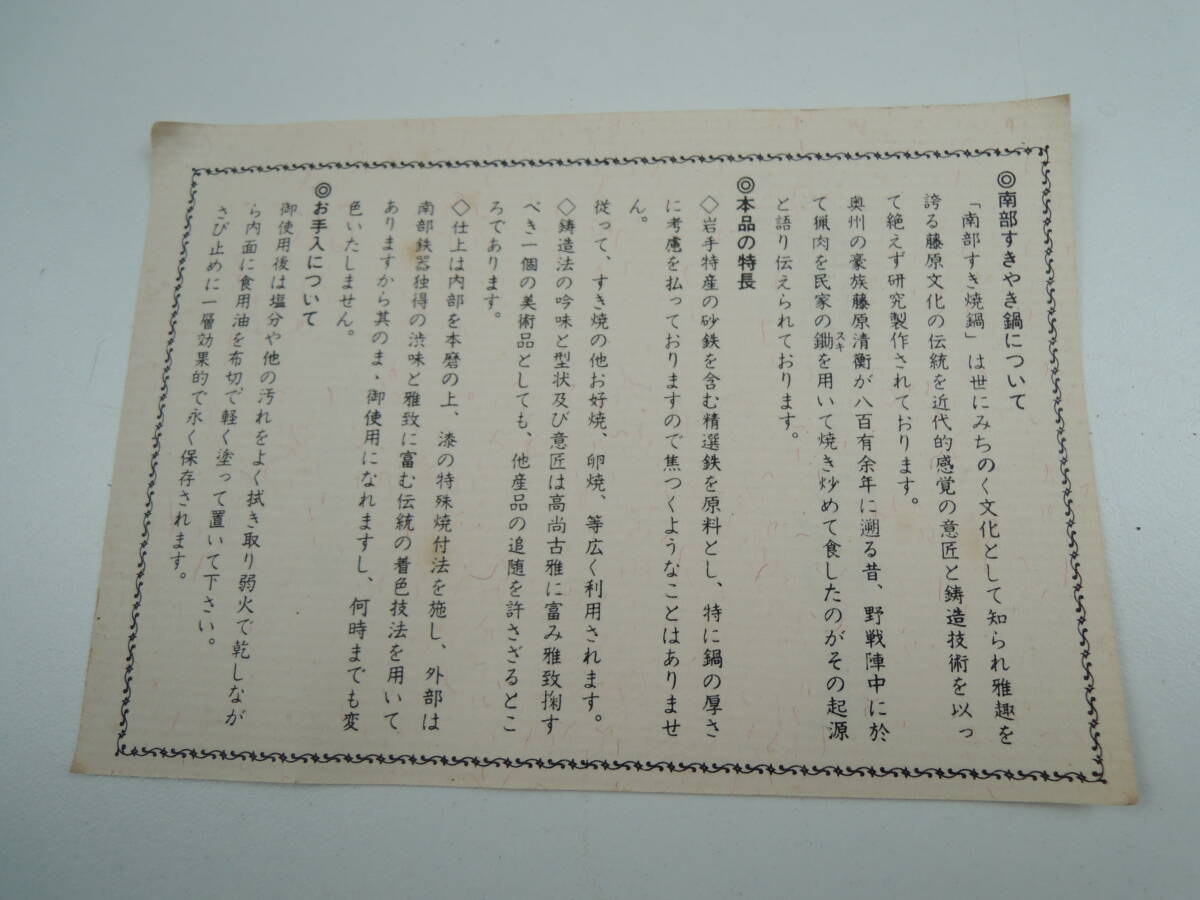 ◎南部すきやき鍋について
「南部すき焼鍋」は世にみちのく文化として知られ雅趣を
誇る藤原文化の伝統を近代的感覚の意匠と鋳造技術を以っ
て絶えず研究製作されております。
奥州の豪族藤原清衡が八百有余年に遡る昔、野戦陣中に於
て猟肉を民家の鋤スキを用いて焼き炒めて食したのがその起源
と語り伝えられております。
◎本品の特長
◇岩手特産の砂鉄を含む精選鉄を原料とし、特に鍋の厚さ
に考慮を払っておりますので焦つくようなことはありませ
ん。
従って、すき焼の他お好焼、卵焼、等広く利用されます。
◇鋳造法の吟味と型状及び意匠は高尚古雅に富み雅致掬す
べき一個の美術品としても、他産品の追随を許さざるとこ
ろであります。
◇仕上は内部を本磨の上、漆の特殊焼付法を施し、外部は
南部鉄器独得の渋味と雅致に富む伝統の着色技法を用いて
ありますから其のまゝ御使用になれますし、何時までも変
色いたしません。
◎お手入について
御使用後は塩分や他の汚れをよく拭き取り弱火で乾しなが
ら内面に食用油を布切で軽く塗って置いて下さい。
さび止めに一層効果的で永く保存されます。